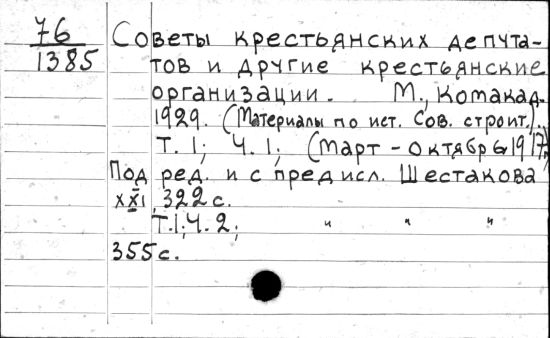 76 Советы крестьянских депута-
1385 тов и другие крестьянские
организации. М., Комакад.
1929. (Материалы по ист. Сов. строит.).
Т. 1; Ч. 1; (Март - октябрь 1917)
Под ред. и с предисл. Шестакова
XXI, 322 с.
Т. 1; Ч. 2; " " "
355 с.